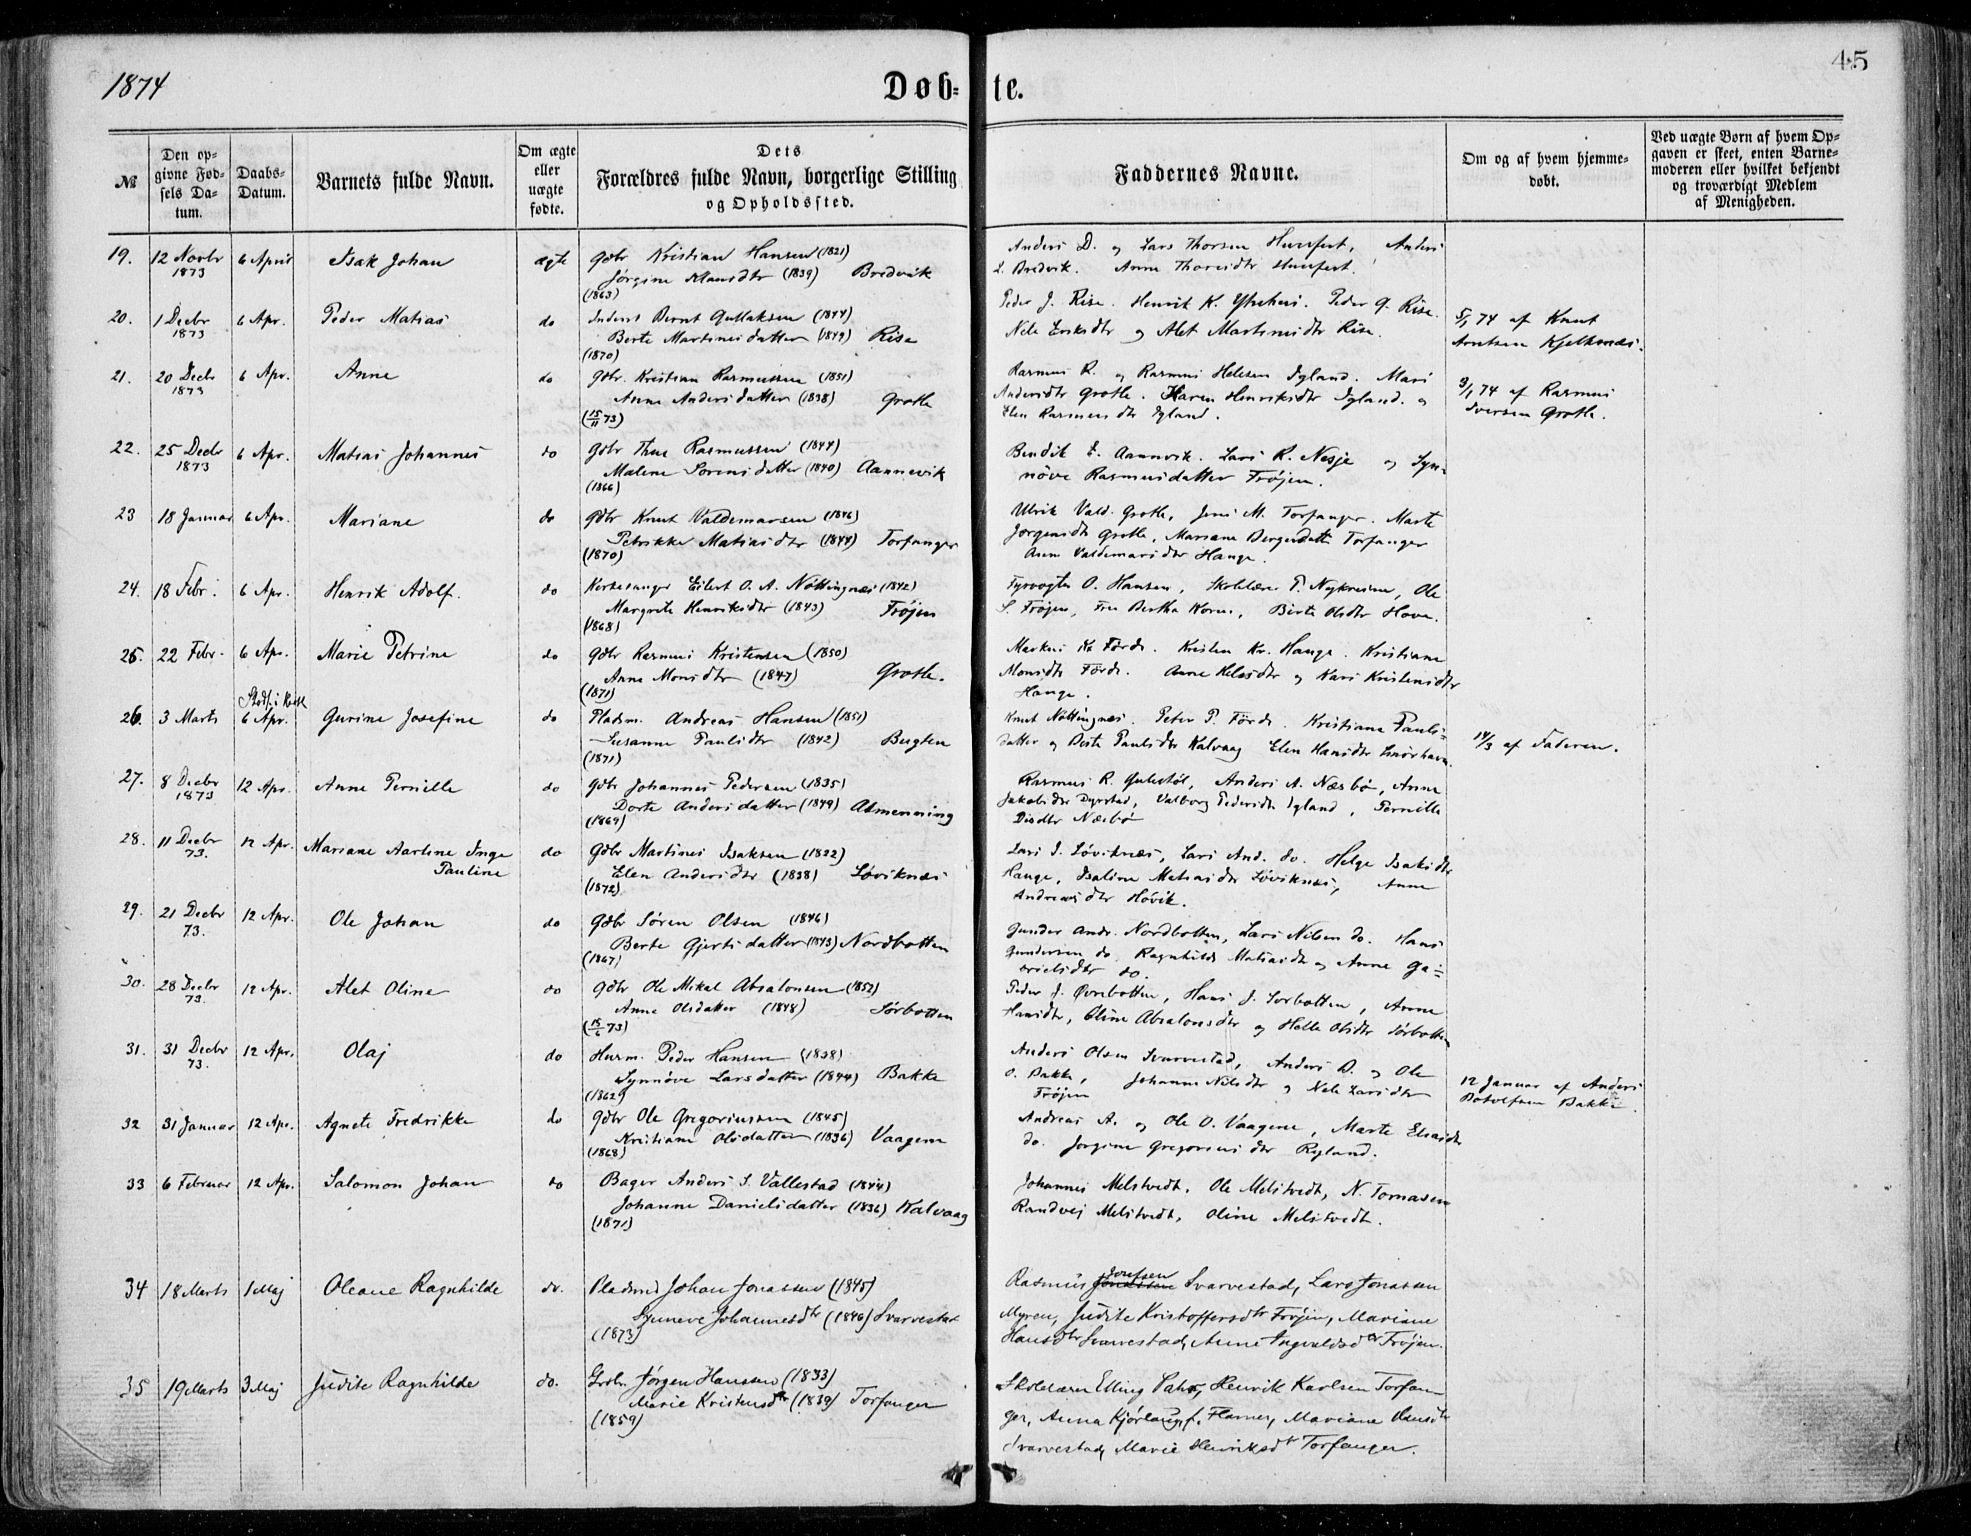 1874
45
Døb= te.
№
Den op=
givne Fød=
sels Da=
tum.
Daabs=
Datum.
Barnets fulde Navn.
Om ægte
eller
uægte
fødte.
Dets
Forældres fulde Navn, borgerlige Stilling
og Opholdssted.
Faddernes Navne.
Om og af hvem hjemme=
døbt.
Ved uægte Børn af hvem Op=
gaven er skeet, enten Barne=
moderen eller hvilket bekjendt
og troværdigt Medlem
af Menigheden.
19. 12 Novbr 6 April Isak Johan ægte Gdbr Kristian Hansen (1821) Anders D. og Lars Thorsen Husefest, Anders
1873 Jørgine Mansdtr (1839) Bredvik L. Bredvik. Anne Thorsdtr Husefest.
(1863)
20. 1 Decbr 6 Apr. Peder Matias do Inderst Bernt Gullaksen (1844) Peder J. Rise. Henrik K. Ytrehus. Peder G. Rise.
1873 Berte Martinusdatter (1849) Rise Nele Eriksdtr og Alet Martinusdtr Rise. 5/1 74 af Knut
(1870) Arntsen Kjelkenæs.
21. 20 Decbr 6 Apr. Anne do Gdbr. Kristian Rasmussen (1851) Rasmus R. og Rasmus Helesen Igland. Mari
1873 Anne Andersdatter (1838) Grotle Andersdtr Grotle. Karen Henriksdtr Igland. og 3/1 74 af Rasmus
(15/11 73) Elen Rasmusdtr Igland. Iversen Grotle.
22. 25 Decbr 6 Apr. Matias Johannes do Gdbr Thue Rasmussen (1844) Bendik E. Aannevik. Lars R. Nesje og Syn=
1873 Malene Sørensdatter (1840) Aannevik növe Rasmusdatter Frøjen.
(1866)
23 18 Januar 6 Apr. Mariane do Gdbr Knut Valdemarsen (1846) Ulrik Vald. Grotle, Jens M. Torfanger. Marte
Petrikke Matiasdtr (1844) Torfanger Jørgensdtr Grotle, Mariane Borgesdatter Torfanger
(1870) Anne Valdemarsdtr Hauge.
24. 18 Febr. 6 Apr. Henrik Adolf. do Kirkesanger Eilert O. A. Nøttingnæs (1842) Fyrvogter O. Hansen, Skolelærer P. Nykreim, Ole
Margrete Henriksdtr (1843) Frøjen S. Frøjen, Fru Bertha Koren, Birte Olsdtr Hove.
(1868)
25. 22 Febr. 6 Apr. Marie Petrine do Gdbr Rasmus Kristensen (1850) Markus Førde. Kristen Kr. Hauge. Kristiane
Anne Monsdtr (1847) Grotle. Monsdtr Förde. Anne Helesdtr og Kari Kristensdtr
(1871) Hauge.
26. 3 Marts 6 Apr. Gurine Josefine do Pladsm. Andreas Hansen (1851) Knut Nöttingnæs. Peter P. Förde. Kristiane Pauls=
Susanne Paulsdtr (1842) Bugten datter og Birte Paulsdtr Kalvaag Elen Hansdtr Smørhavn. 14/3 af Faderen.
(1871)
27. 8 Decbr 12 Apr. Anne Pernille do Gdbr Johannes Pedersen (1835) Rasmus R. Gulestöl, Anders A. Næsbø, Anne
1873 Dorte Andersdatter (1849) Almenning Jakobsdtr Dyrstad, Valborg Pedersdtr Igland, Pernille
(1869) Næsbø
28. 11 Decbr 12 Apr. Mariane Aartine Inge do Gdbr Martinus Isaksen (1822) Lars I. Løviknæs, Lars And. do. Helge Isaksdtr
73. Pauline Elen Andersdtr (1838) Løviknæs Hauge, Isaline Matiasdtr Løviknæs, Anne
(1872) Andreasdtr Hövik.
29. 21 Decbr 12 Apr. Ole Johan do Gdbr Søren Olsen (1846) Gunder Andr. Nordbotten, Lars Nilsen do. Hans
73. Berte Gjertsdatter (1843) Nordbotten Gundersen do. Ragnhilde Matiasdtr og Anne Ga=
(1867) brielsdtr do.
30. 28 Decbr 12 Apr. Alet Oline do Gdbr Ole Mikal Absalonsen (1852) Peder J. Øvrebotten, Hans J. Sørbotten, Anne
73. Anne Olsdatter (1848) Sørbotten Hansdtr, Oline Absalonsdtr og Helle Olsdtr Sørbotten
(15/6 73)
31. 31 Decbr 12 Apr. Olaj do Husm. Peder Hansen (1838) Anders Olsen Svarvestad, Anders D. og Ole
73. Synnøve Larsdatter (1844) Bakke O. Bakke, Johanne Nilsdtr og Nele Larsdtr 12 Januar af Anders
(1862) Frøjen Botolfsen Bakke.
32 31 Januar 12 Apr. Agnete Fredrikke do Gdbr Ole Gregoriussen (1845) Andreas A. og Ole O. Vaagene, Marte Eliasdtr
Kristiane Olsdatter (1836) Vaagene do. Jorgine Gregoriusdtr Rylend.
(1868)
33 6 Februar 12 Apr. Salomon Johan do Bager Anders S. Vallestad (1844) Johannes Melstvedt, Ole Melstvedt, N. Tomasen
Johanne Danielsdatter (1836) Kalvaag Randvej Melstvedt, Oline Melstvedt.
(1871)
34 18 Marts 1 Maj Oleane Ragnhilde do. Pladsmd Johan Jonassen (1845) Rasmus Josefsen Svarvestad, Lars Jonassen
Synneve Johannesdtr (1846) Svarvestad Myren, Judite Kristoffersdtr Frøjen, Mariane
(1873) Hansdtr Svarvestad, Anne Ingvaldsdtr Frøjen.
35 19 Marts 3 Maj Judite Ragnhilde do. Grdbr. Jørgen Hansen (1833) Skolelærer Elling Henrik Karlsen Torfan
Marie Kristensdtr (1839) Torfanger ger, Anna f. Flamer, Mariane Hansdtr
(1859) Svarvestad, Marie Henriksdtr Torfanger.